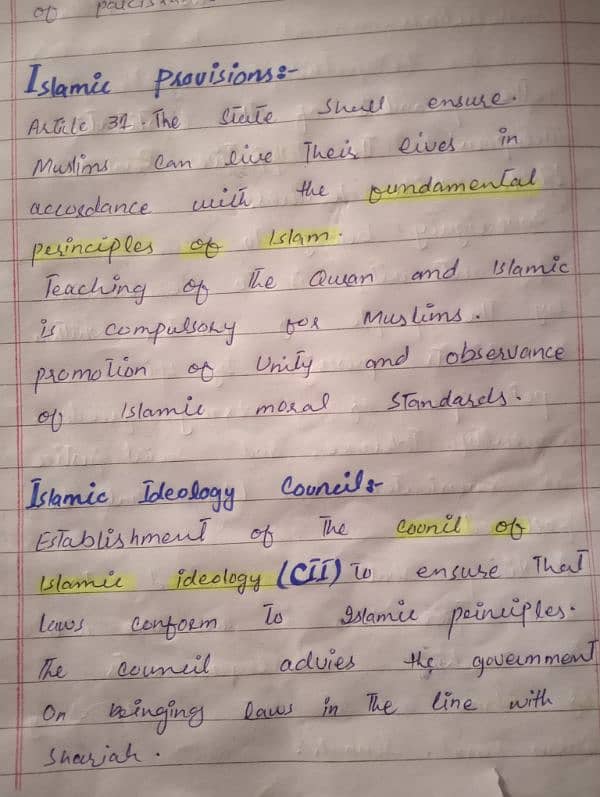 of pakistan
Islamic Provisions:-
Article 31. The state shall ensure.
Muslims can live Their lives in
accordance with the pundamental
perinciples of Islam.
Teaching of The Quran and Islamic
is compulsory for Muslims.
promotion of Unity and observance
of Islamic moral Standards.
Islamic Ideology Council:-
Establishment of The Counil of
Islamic ideology (CII) To ensure That
laws conform To Islamic peinciples.
The council advies the government
On bringing laws in The line with
Shariah.